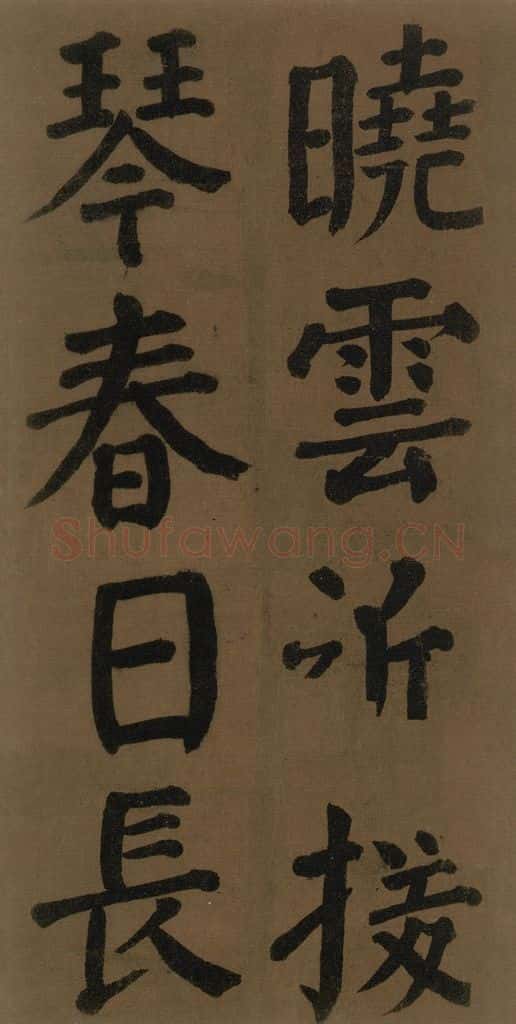 曉雲接
琴春日長
Shufawang.CN